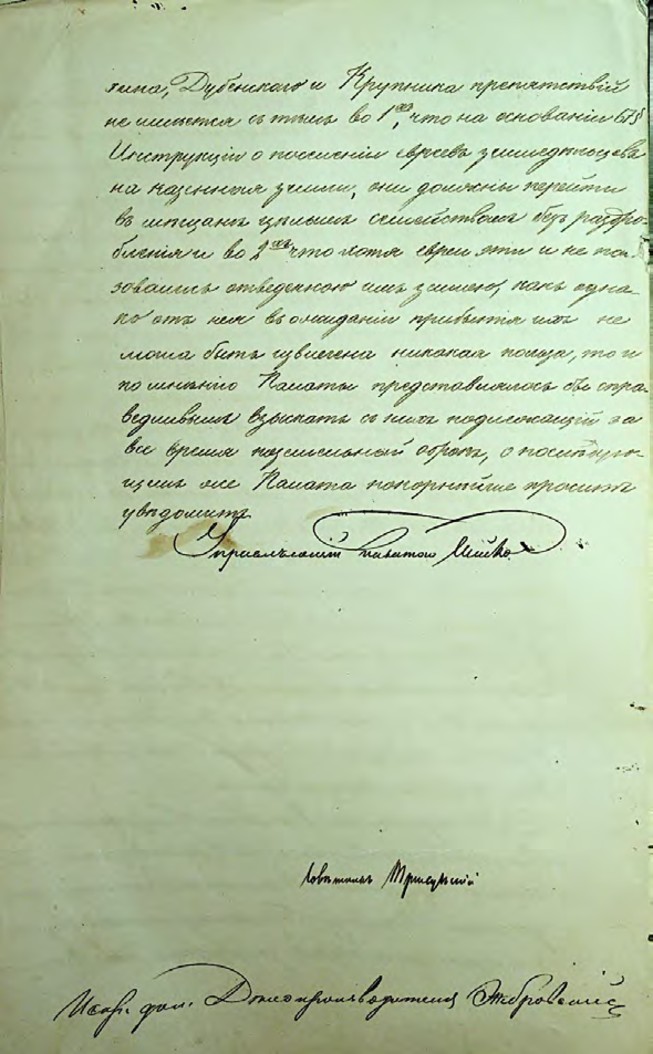 хина, Дубенского и Крупника препятствій
не имѣется съ тѣмъ во 1хъ, что на основаніи §
Инструкціи о поселеніи евреевъ земледѣльцевъ
на казенныя земли, они должны перейти
въ мѣщане цѣлымъ семействомъ безъ раздро-
бленія и во 2хъ что хотя евреи эти и не поль-
зовались отведенною имъ землею, какъ одна-
ко отъ нея въ ожиданіи прибытія ихъ не
могла быть извлечена никакая польза, то и
по мнѣнію Палаты представлялось бы спра-
ведливымъ взыскать съ нихъ надлежащій за
все время поземельный оброкъ, о послѣдую-
щемъ же Палата покорнѣйше проситъ
увѣдомить.
Управляющій Палатою
Совѣтникъ
Испр. дол. Дѣлопроизводителя Жебровскій